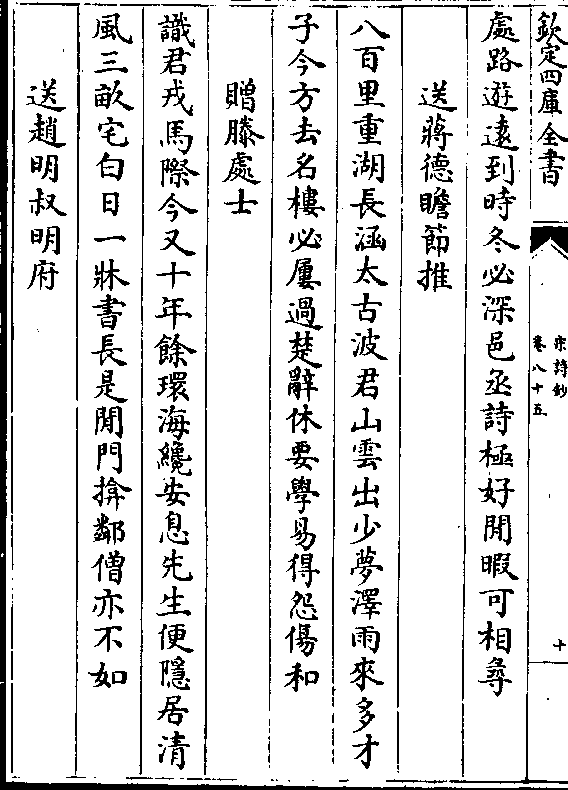 欽定四庫全書
宋詩鈔
卷八十五
十
處路遊遠到時冬必深邑丞詩極好閒暇可相尋
送蔣德瞻節推
八百里重湖長涵太古波君山雲出少夢澤雨來多才
子今方去名樓必屢過楚辭休要學易得怨傷和
贈滕處士
識君戎馬際今又十年餘環海纔安息先生便隱居清
風三畝宅白日一牀書長是閒門揜鄰僧亦不如
送趙明叔明府